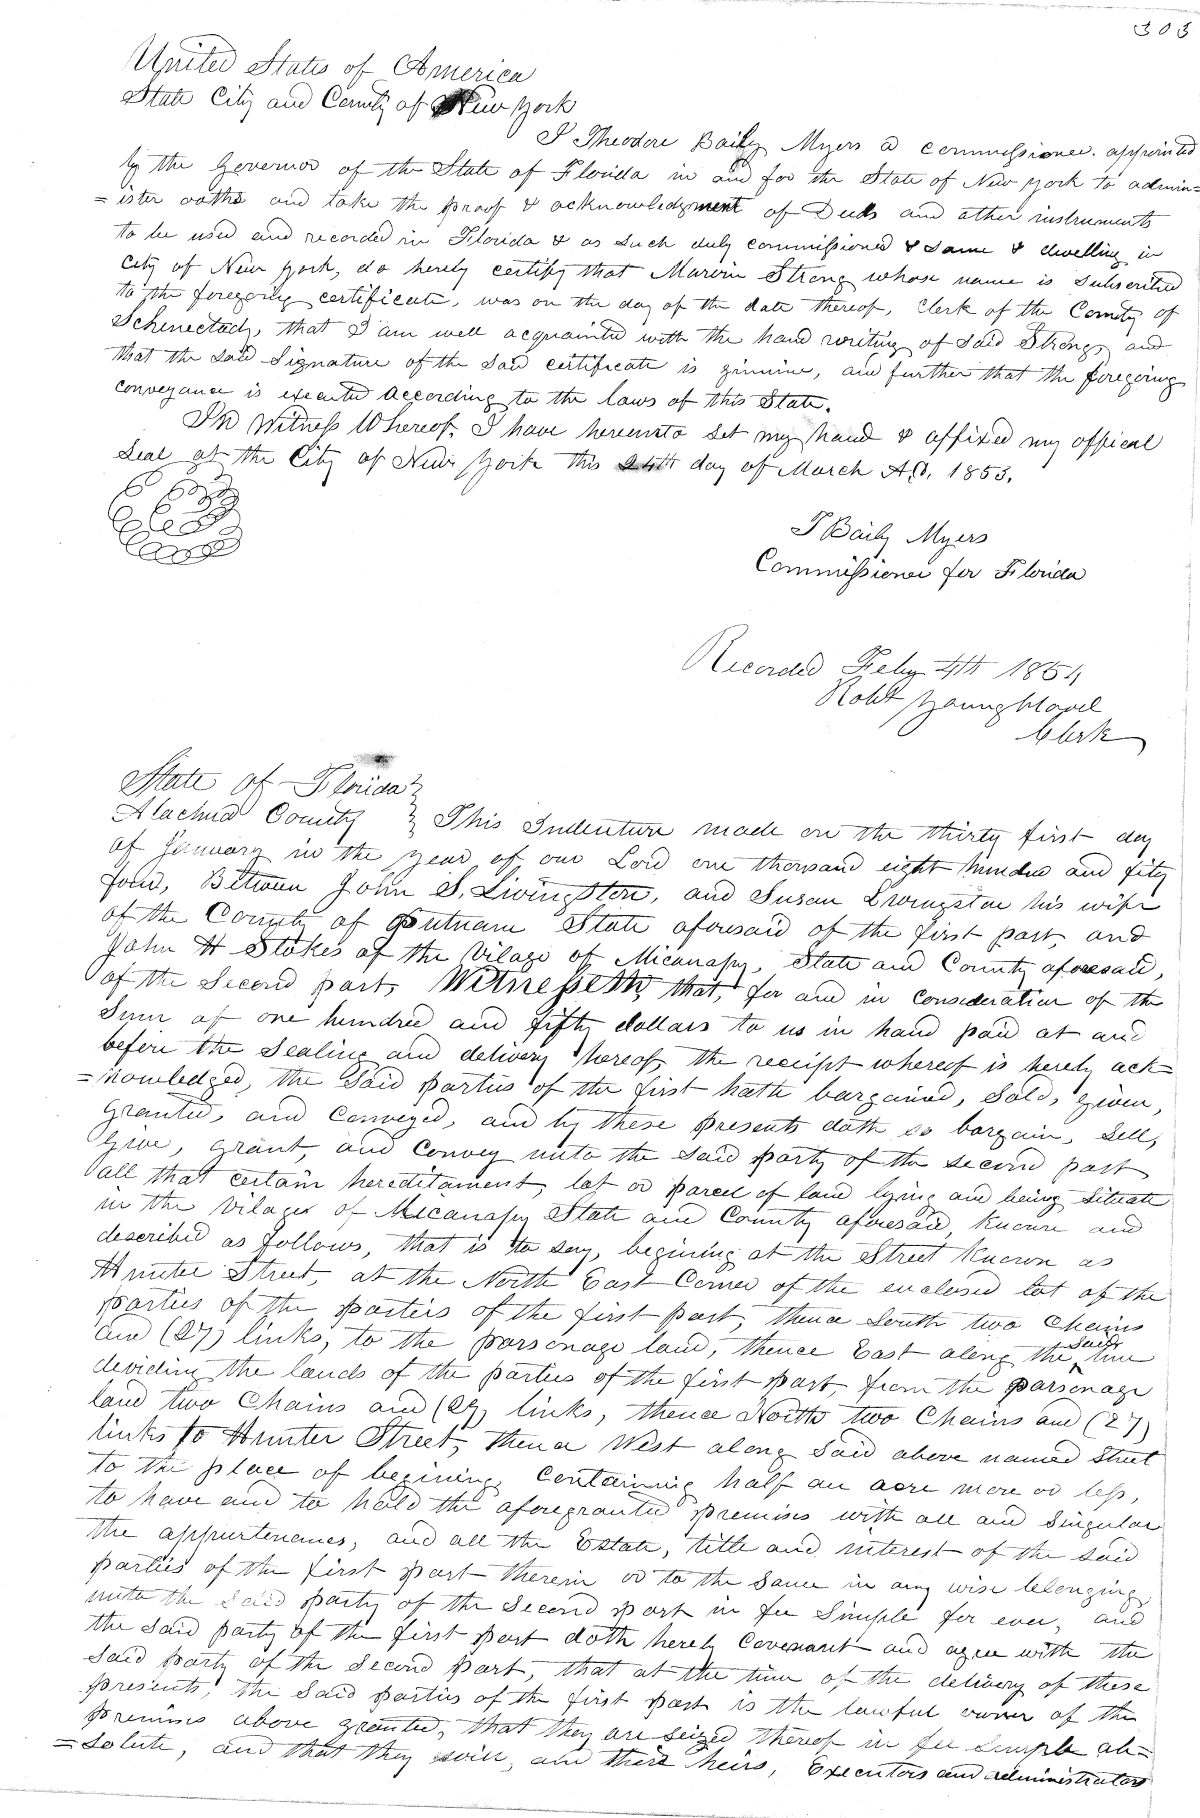 303
United States of America
State City and County of New York
I Theodore Baily Myers a commissioner. appointed
by the Governor of the State of Florida in and for the State of New York to admin=
=ister oaths and take the proof & acknowledgment of Deeds and other instruments
to be used and recorded in Florida & as such duly commissioned & same & dwelling in
City of New York, do hereby certify that Marvin Strong whose name is subscribed
to the foregoing certificate, was on the day of the date thereof, Clerk of the County of
Schenectady, that I am well acquainted with the hand writing of said Strong, and
that the said Signature of the said certificate is ginuine, and further that the foregoing
conveyance is executed according to the laws of this State.
In Witness Whereof, I have hereunto set my hand & affixed my official
Seal at the City of New York this 24th day of March A.D. 1853.
T Baily Myers
Commissioner for Florida
Recorded Feby 4th 1854
Robt Youngblood
Clerk
State of Florida
Alachua County } This Indenture made on the thirty first day
of January in the year of our Lord one thousand eight hundred and fifty
four, Between John S. Livingston, and Susan Livingston his wife
of the County of Putnam State aforesaid of the first part, and
John H Stokes of the Vilage of Micanapy, State and County aforesaid,
of the Second part, Witnesseth, that, for and in consideration of the
Sum of one hundred and fifty dollars to us in hand paid at and
before the sealing and delivery hereof, the receipt whereof is hereby ack=
=nowledged, the said parties of the first hath bargained, sold, given,
granted, and conveyed, and by these presents doth so bargain, sell,
give, grant, and convey unto the said party of the second part
all that certain hereditament, lot or parcel of land lying and being situate
in the Vilage of Micanapy State and County aforesaid, known and
described as follows, that is to say, begining at the Street known as
Hunter Street, at the North East Corner of the enclosed lot of the
parties of the parties of the first part, thence South two Chains
and (27) links, to the parsonage land, thence East along the said line
dividing the lands of the parties of the first part, from the parsonage
land two Chains and (27) links, thence North two Chains and (27)
links to Hunter Street, thence West along said above named street
to the place of begining, Containing half an acre more or less,
to have and to hold the aforegranted premises with all and singular
the appurtenances, and all the Estate, title and interest of the said
parties of the first part therein or to the same in any wise belonging,
unto the said party of the second part in fee simple for ever, and
the said party of the first part doth hereby covenant and agree with the
said party of the second part, that at the time of the delivery of these
presents, the said parties of the first part is the lawful owner of the
premises above granted, that they are seized thereof in fee simple ab=
=solute, and that they will, and their heirs, Executors and administrators